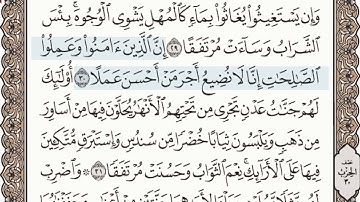 وَإِن يَسْتَغِيثُوا۟ يُغَاثُوا۟ بِمَآءٍ كَٱلْمُهْلِ يَشْوِى ٱلْوُجُوهَ ۚ بِئْسَ
ٱلشَّرَابُ وَسَآءَتْ مُرْتَفَقًا ٢٩ إِنَّ ٱلَّذِينَ ءَامَنُوا۟ وَعَمِلُوا۟
ٱلصَّـٰلِحَـٰتِ إِنَّا لَا نُضِيعُ أَجْرَ مَنْ أَحْسَنَ عَمَلًا ٣٠ أُو۟لَـٰٓئِكَ
لَهُمْ جَنَّـٰتُ عَدْنٍ تَجْرِى مِن تَحْتِهِمُ ٱلْأَنْهَـٰرُ يُحَلَّوْنَ فِيهَا مِنْ أَسَاوِرَ
مِن ذَهَبٍ وَيَلْبَسُونَ ثِيَابًا خُضْرًا مِّن سُندُسٍ وَإِسْتَبْرَقٍ مُّتَّكِـِٔينَ
فِيهَا عَلَى ٱلْأَرَآئِكِ ۚ نِعْمَ ٱلثَّوَابُ وَحَسُنَتْ مُرْتَفَقًا ٣١ ۞ وَٱضْرِبْ
نصف
الحزب
٣٠